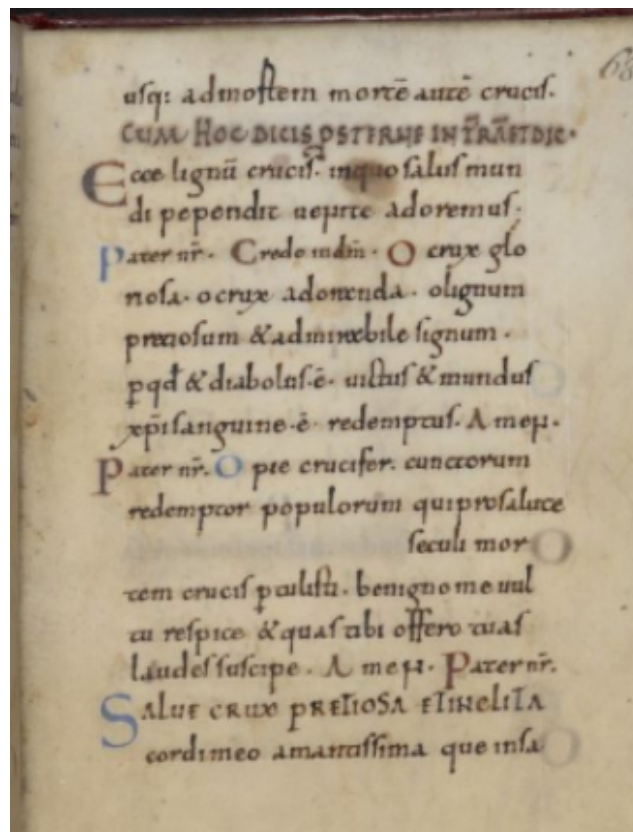 68
usq: ad mortem mortē autē crucis.
CUM HOC DICIS PSTERNE IN TRĀ ET DIC.
Ecce lignū crucis. inquo salus mun
di pependit uenite adoremus.
Pater nr̄. Credo indm̄. O crux glo
riosa. o crux adoranda. o lignum
preciosum & admirabile signum.
p qd̄ & diabolus. ē. uictus & mundus
xp̄i sanguine. ē. redemptus. Amen.
Pater nr̄. O pie crucifer. cunctorum
redemptor populorum qui pro salute
seculi mor
tem crucis p tulisti. benigno me uul
tu respice & quas tibi offero tuas
laudes suscipe. Amen. Pater nr̄.
SALUE CRUX PRETIOSA ET INCLITA
cordi meo amantissima que in sa